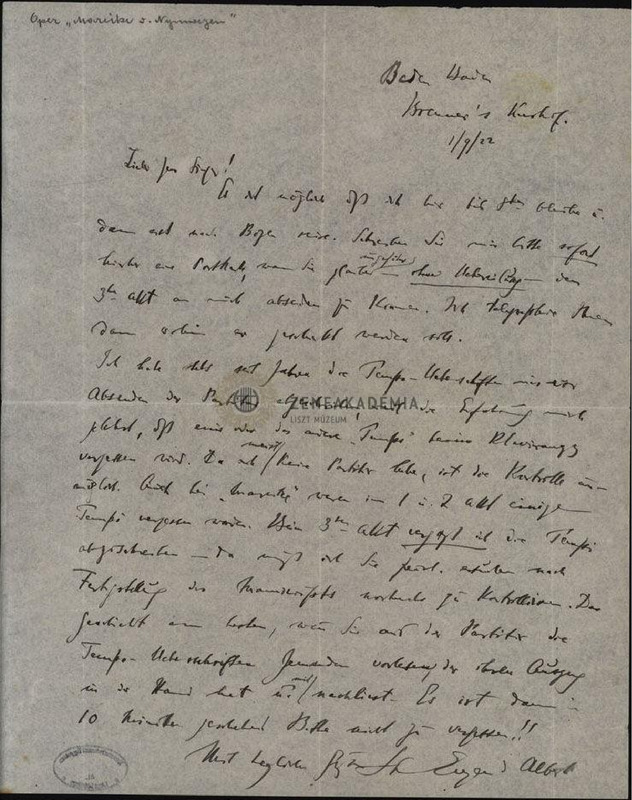 Oper „Mareike v. Nymwegen"
Baden Baden
Brenner's Kurhof.
1/9/22
Lieber Herr
Es ist möglich daß ich hier bis 8ten bleibe u.
dann erst nach Bozen reise. Schreiben Sie mir bitte sofort
hierher eine Postkarte, wann Sie glauben
ungefähr
— ohne Uebereilung — den
3ten Akt an mich absenden zu können. Ich telegraphiere Ihnen
dann wohin er geschickt werden soll.
Ich habe stets seit Jahren die Tempo-Ueberschriften mir vor
Absenden der Partitur die Erfahrung mich
gelehrt, daß eine oder das andere „Tempo" beim Klavierauszug
vergessen wird. Da ich keine Partitur habe, ist die Kontrolle un-
möglich. Auch bei „Mareike" waren im 1 u. 2 Akt einige
Tempi vergessen worden. Beim 3ten Akt vergaß ich die Tempi
abzuschreiben — da muß ich Sie herzl. ersuchen nach
Fertigstellung des Manuscripts nochmals zu kontrollieren. Das
geschieht am besten, wenn Sie aus der Partitur die
Tempo-Ueberschriften Jemanden vorlesen, der den Auszug
in der Hand hat u. mit nachliest. Es ist dann in
10 Minuten geschehen! Bitte nicht zu vergessen!!
Mit herzlichen Grüßen Ihr Eugen d'Albert
ZENEAKADÉMIA
LISZT MÚZEUM